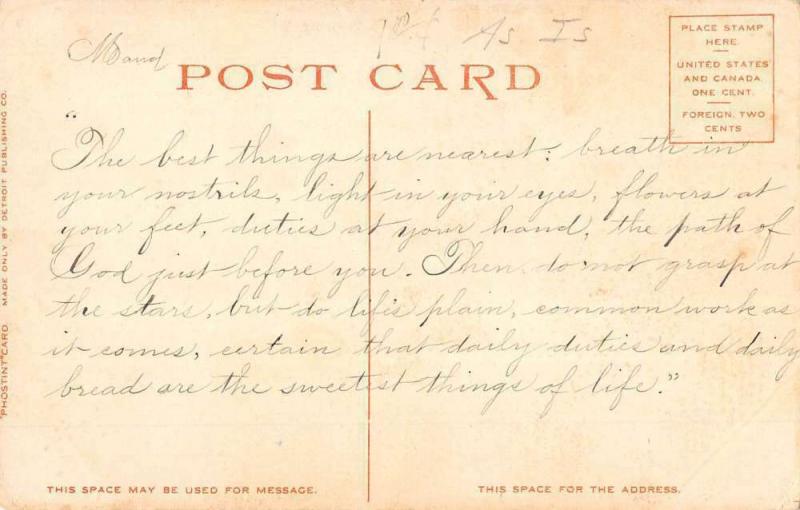 Maud
As Is
POST CARD
PLACE STAMP
HERE.
UNITED STATES
AND CANADA
ONE CENT.
FOREIGN, TWO
CENTS
"The best things are nearest: breath in
your nostrils, light in your eyes, flowers at
your feet, duties at your hand, the path of
God just before you. Then do not grasp at
the stars, but do life's plain, common work as
it comes, certain that daily duties and daily
bread are the sweetest things of life."
THIS SPACE MAY BE USED FOR MESSAGE.
THIS SPACE FOR THE ADDRESS.
"PHOSTINT" CARD MADE ONLY BY DETROIT PUBLISHING CO.